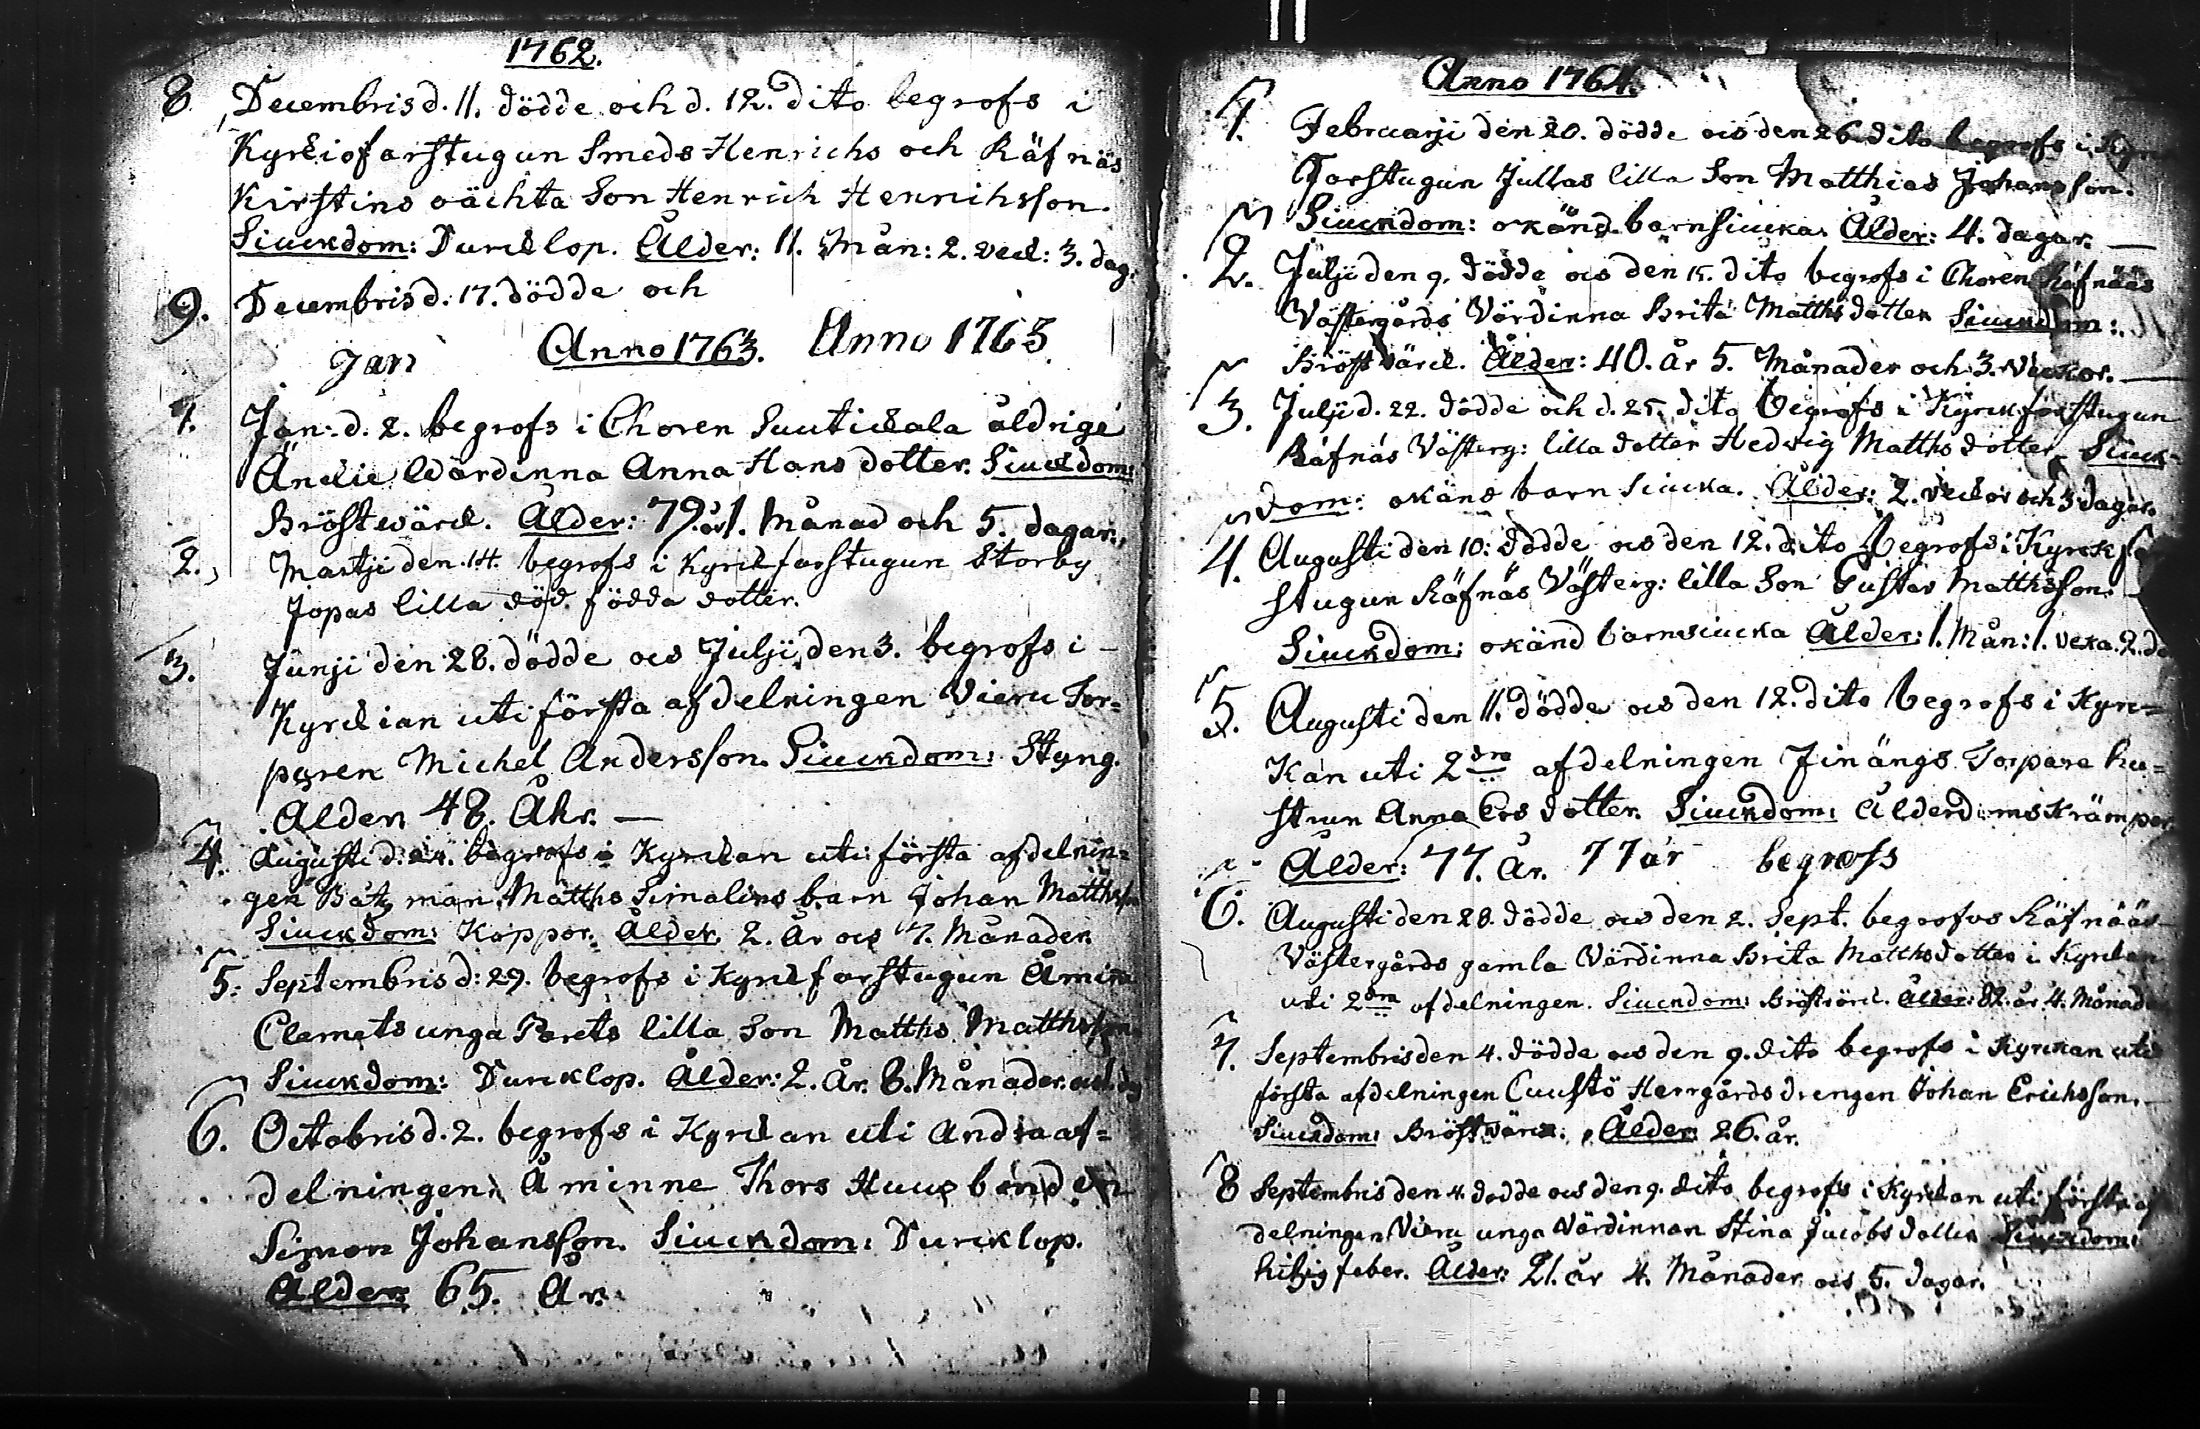 1762.
8. Decembris d. 11. dödde och d. 12. dito begrofs i
Kyrkiofarstugun Smeds Henrichs och Räfnäs
Kirstins oächta Son Henrich Henrihsson.
Siuckdom: Durcklop. Ålder: 11. Mån: 2. veck: 3. dag:
9. Decembris d. 17. dödde och
Jan Anno 1763. Anno 1763
1. Jan: d. 2. begrofs i Choren åldrige
Wärdinna Anna Hans dotter. Siuckdom:
Bröstwärck. Ålder: 79. år 1. Månad och 5. dagar.
2. Martji den 14. begrofs i Kyrckfarstugun Storby
Jopas lilla död födda dotter.
3. Junji den 28. dödde ocs Julji den 3. begrofs i
Kyrckian uti första afdelningen Vieru Tor=
paren Michel Andersson. Siuckdom: Styng.
Alder 48. Åhr.
4. Augusti d: 24. begrofs i Kyrckan uti första afdelnin=
gen Båtzman Matths barn Johan Matthss
Siuckdom: Koppor. Ålder 2. År ocs 7. Månader.
5. Septembris d: 29. begrofs i Kyrckfarstugun Åmin
Clemets unga lilla Son Matths Matthsson
Siuckdom: Durcklop. Ålder: 2. År. 8. Månader.
6. Octobris d. 2. begrofs i Kyrckan uti Andra af=
delningen Åminne Thors Huusbonden
Simon Johansson. Siuckdom: Durcklop.
Ålder 65. År.
Anno 1764.
1. Februarji den 20. dödde ocs den 26. dito begrofs i Kyrc
Farstugun Jullas lilla Son Matthias Johansson.
Siuckdom: okänd barnsiucka. Ålder: 4. dagar.
2. Julji den 9. dödde ocs den 15. dito begrofs i Choren Räfnääs
Västergårds Värdinna Brita Matthsdotter Siuckdom:
Bröstvärck. Ålder: 40. år 5. Månader och 3. Veckor.
3. Julji d. 22. dödde och d. 25. dito begrofs i Kyrckförstugun
Räfnäs Västerg: lilla dotter Hedwig Matthsdotter. Siuck=
dom: okänd barn siucka. Ålder: 2. veckor och 3 dagar.
4. Augusti den 10. dödde ocs den 12. dito begrofs i Kyrckf
stugun Räfnäs Västerg: lilla Son Gustav Matthsson.
Siuckdom: okänd barnsiucka Ålder: 1. Mån: 1. veka. 2. da
5. Augusti den 11. dödde ocs den 12. dito begrofs i Kyrc=
kan uti 2dra afdelningen Jinängs Torpare hu=
strun Anna Ers dotter. Siuckdom: Ålderdomskrämpor.
Ålder: 77. År. 77 år begrofs
6. Augusti den 28. dödde ocs den 2. Sept. begrofvs Räfnääs
Västergårds gamla Värdinna Brita Matthsdotter i Kyrckan
uti 2dra afdelningen. Siuckdom: Bröstvärck. Ålder: 82. år 4. Månad
7. Septembris den 4. dödde ocs den 9. dito begrofs i Kyrckan uti
första afdelningen Cuustö Herrgårds drengen Johan Erichsson.
Siuckdom: Bröstvärck. Ålder 26. år.
8 Septembris den 4. dödde ocs den 9. dito begrofs i Kyrckan uti första af
delningen Vieru unga Värdinnan Stina Jacobsdotter Siuckdom:
hitzig feber. Ålder: 21. år 4. Månader ocs 5. dagar.